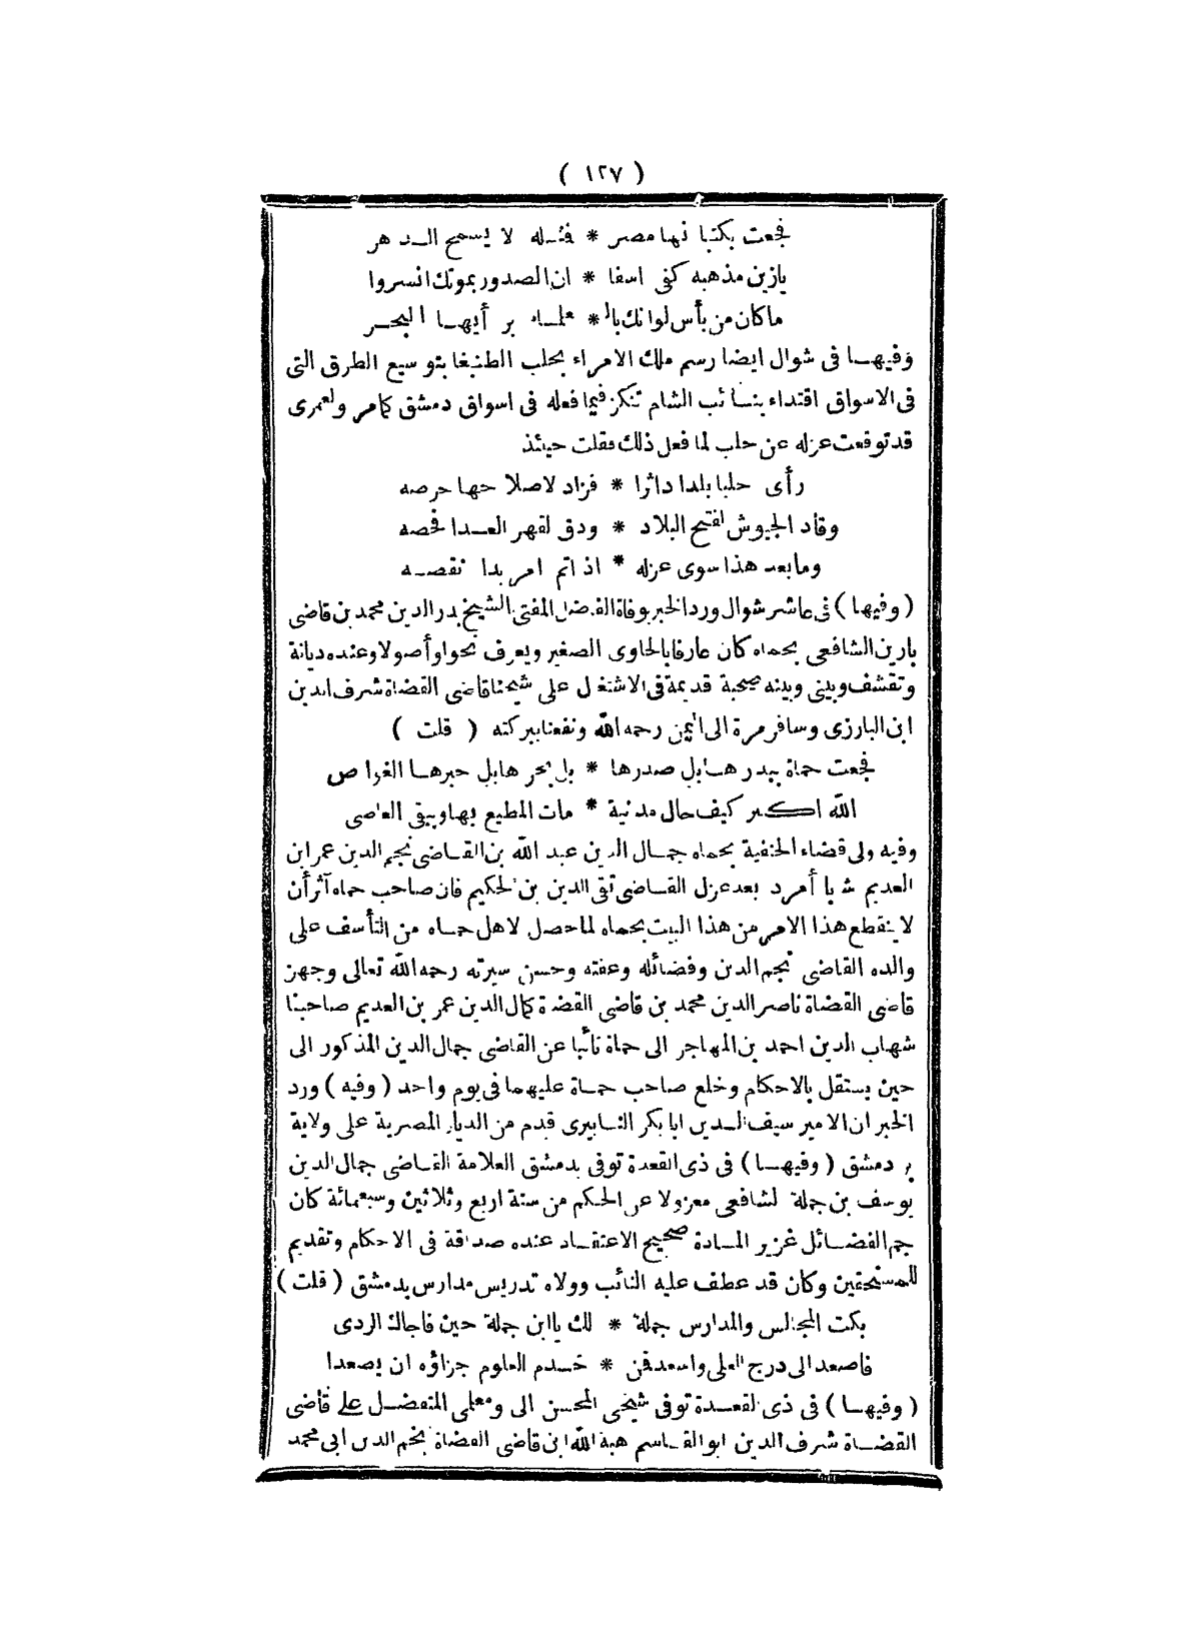 ( ١٢٧ )
فجعت بكتبا نها مصر * فمثله لا يسمح الدهر
يازين مذهبه كفى اسفا * ان الصدور بموتك انسروا
ما كان من بأس لو انك بال * علماء بر أيها البحر
وفيها فى شوال ايضا رسم ملك الامراء بحلب الطنبغا بتوسيع الطرق التى
فى الاسواق اقتداء بنائب الشام تنكز فيما فعله فى اسواق دمشق كما مر ولعمرى
قد توقعت عزله عن حلب لما فعل ذلك فقلت حينئذ
رأى حلبا بلدا داثرا * فزاد لاصلاحها حرصه
وقاد الجيوش لفتح البلاد * ودق لقهر العدا فحصه
وما بعد هذا سوى عزله * اذا تم امر بدا نقصه
( وفيها ) فى عاشر شوال ورد الخبر بوفاة الفاضل المفتى الشيخ بدر الدين محمد بن قاضى
بارين الشافعى بحماه كان عارفا بالحاوى الصغير ويعرف نحوا وأصولا وعنده ديانة
وتقشف وبينى وبينه صحبة قديمة فى الاشتغال على شيخنا قاضى القضاة شرف الدين
ابن البارزى وسافر مرة الى اليمن رحمه الله ونفعنا ببركته ( قلت )
فجعت حماة ببدرها بل صدرها * بل بحرها بل حبرها الغواص
الله اكبر كيف حال مدينة * مات المطيع بها ويبقى العاصى
وفيه ولى قضاء الحنفية بحماه جمال الدين عبد الله بن القاضى نجم الدين عمر ابن
العديم شابا أمرد بعد عزل القاضى تقى الدين بن الحكيم فان صاحب حماه آثر أن
لا ينقطع هذا الامر من هذا البيت بحماه لما حصل لاهل حماه من التأسف على
والده القاضى نجم الدين وفضائله وعفته وحسن سيرته رحمه الله تعالى وجهز
قاضى القضاة ناصر الدين محمد بن قاضى القضاة كمال الدين عمر بن العديم صاحبنا
شهاب الدين احمد بن المهاجر الى حماة نائبا عن القاضى جمال الدين المذكور الى
حين يستقل بالاحكام وخلع صاحب حماة عليهما فى يوم واحد ( وفيه ) ورد
الخبر ان الامير سيف الدين ابا بكر البابيرى قدم من الديار المصرية على ولاية
بر دمشق ( وفيها ) فى ذى القعدة توفى بدمشق العلامة القاضى جمال الدين
يوسف بن جملة الشافعى معزولا عن الحكم من سنة اربع وثلاثين وسبعمائة كان
جم الفضائل غزير المادة صحيح الاعتقاد عنده صداقة فى الاحكام وتقديم
للمستحقين وكان قد عطف عليه النائب وولاه تدريس مدارس بدمشق ( قلت )
بكت المجالس والمدارس جملة * لك يا ابن جملة حين فاجاك الردى
فاصعد الى درج العلى واسعد فمن * خدم العلوم جزاؤه ان يصعدا
( وفيها ) فى ذى القعدة توفى شيخى المحسن الى ومعلمى المتفضل على قاضى
القضاة شرف الدين ابو القاسم هبة الله ابن قاضى القضاة نجم الدين ابى محمد